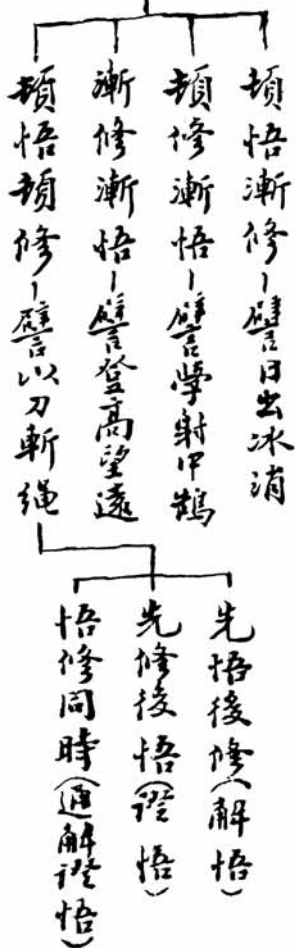 頓悟漸修－譬日出冰消
頓修漸悟－譬學射中鵠
漸修漸悟－譬登高望遠
頓悟頓修－譬以刀斬繩
先悟後修（解悟）
先修後悟（證悟）
悟修同時（通解證悟）